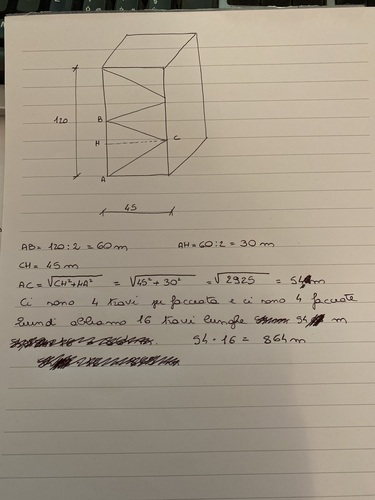 120
B
H
C
A
45
AB = 120 : 2 = 60 m AH = 60 : 2 = 30 m
CH = 45 m
AC = √CH²+HA² = √45²+30² = √2925 = 54 m
Ci sono 4 travi per facciata e ci sono 4 facciate
Quindi abbiamo 16 travi lunghe 54 m
54 · 16 = 864 m